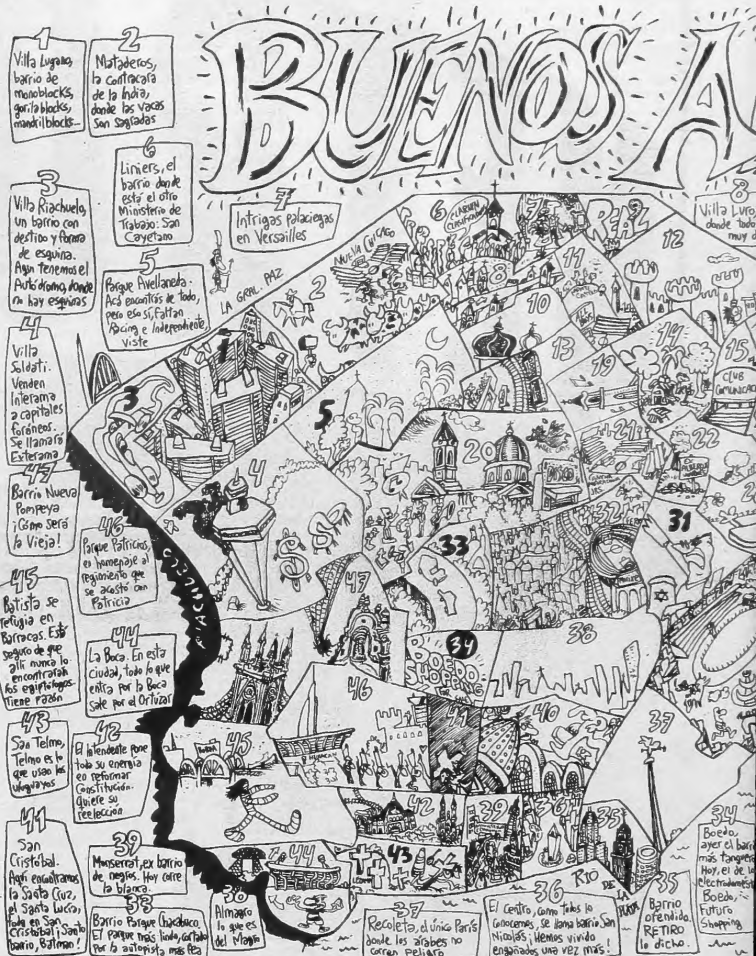 BUENOS A
1
Villa Lugano,
barrio de
monoblocks,
gorilablocks,
mandrilblocks...
2
Mataderos,
la contracara
de la India,
donde las vacas
son sagradas
3
Villa Riachuelo,
un barrio con
destino y forma
de esquina.
Aquí tenemos el
Autódromo, donde
no hay esquinas
6
Liniers, el
barrio donde
está el otro
Ministerio de
Trabajo: San
Cayetano
7
Intrigas palaciegas
en Versailles
8
Villa Luro
donde todo
muy
5
Parque Avellaneda.
Acá encontrás de todo,
pero eso sí, faltan
Racing e Independiente,
viste
4
Villa
Soldati.
Venden
Interama
a capitales
foráneos.
Se llamará
Exterama
47
Barrio Nueva
Pompeya
¡Cómo será
la Vieja!
46
Parque Patricios,
es homenaje al
regimiento que
se acostó con
Patricia
45
Batista se
refugia en
Barracas. Está
seguro de que
allí nunca lo
encontrarán
los egiptólogos.
Tiene razón
44
La Boca. En esta
ciudad, todo lo que
entra por la Boca
sale por el Ortúzar
43
San Telmo,
Telmo es lo
que usan los
uruguayos
42
El intendente pone
toda su energía
en reformar
Constitución.
Quiere su
reelección
41
San
Cristóbal.
Aquí encontramos
la Santa Cruz,
el Santa Lucía,
todo en San
Cristóbal ¡Santo
barrio, Batman!
39
Monserrat, ex barrio
de negros. Hoy corre
la blanca.
33
Barrio Parque Chacabuco,
El parque más lindo, cortado
por la autopista más fea
38
Almagro
lo que es
del Magro
37
Recoleta, el único París
donde los árabes no
corren peligro
36
El centro, como todos lo
conocemos, se llama barrio San
Nicolás ¡Hemos vivido
engañados una vez más!
35
Barrio
ofendido.
RETIRO
lo dicho.
34
Boedo,
ayer el barrio
más tanguero
Hoy, el de lo
electrodomést
Boedo,
Futuro
Shopping
LA GRAL PAZ
NUEVA CHICAGO
CLARIN
CLASIFICADOS
REAL
ALL
BOYS
CLUB
COMUNICACI
DISCO
RIACHUELO
BOEDO
SHOPPING
HURACAN
RIO DE LA PLATA
1
2
3
4
5
6
7
8
10
11
12
13
14
15
19
20
21
22
31
32
33
34
35
36
37
38
39
40
41
42
43
44
45
46
47